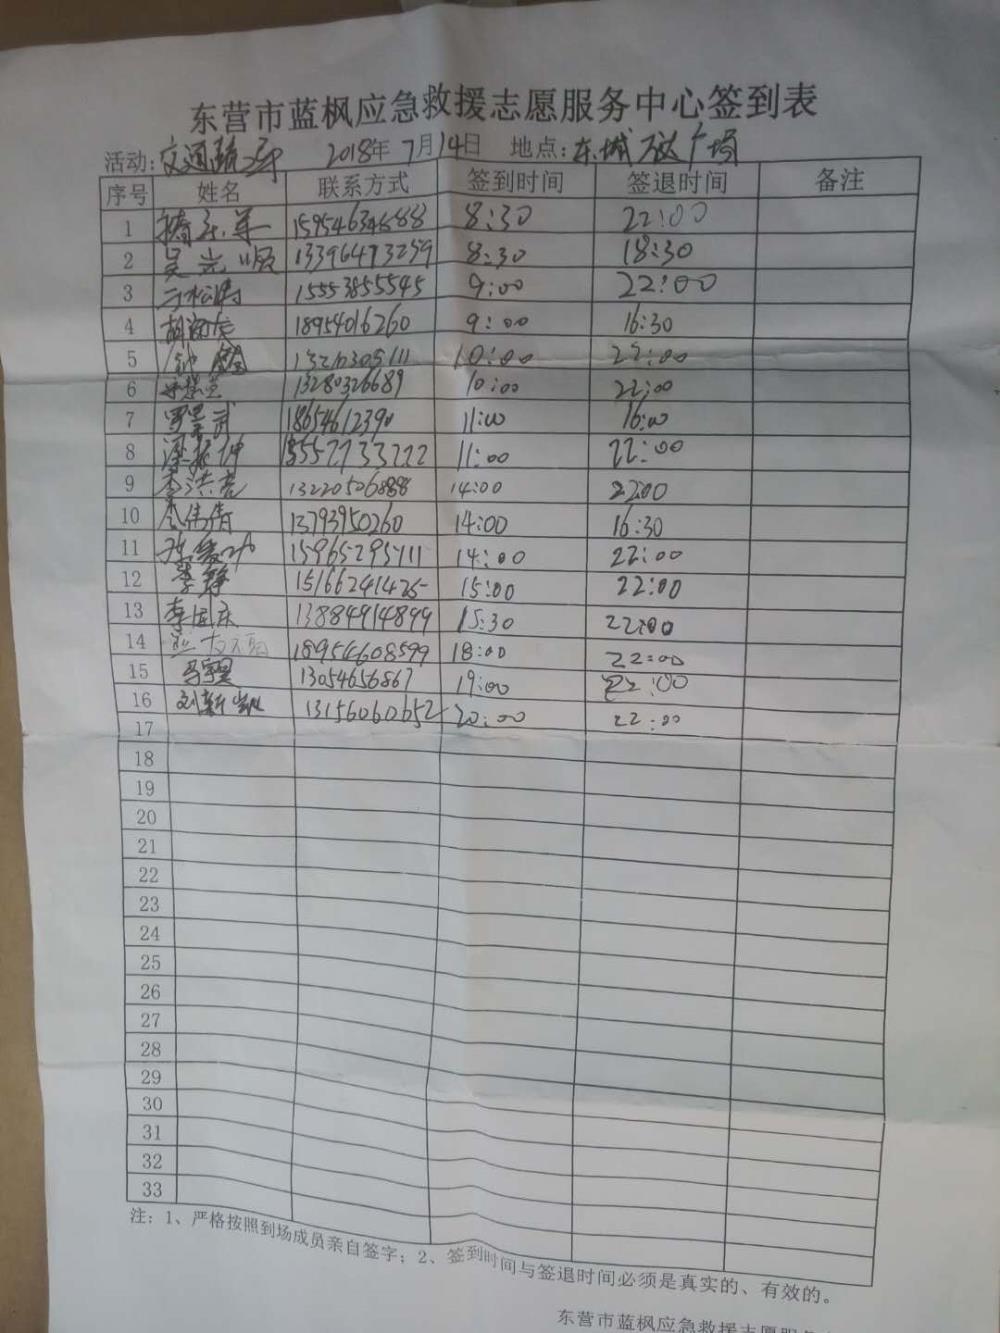 东营市蓝枫应急救援志愿服务中心签到表
活动:交通疏导 2018年7月14日 地点:东城 广场
序号 姓名 联系方式 签到时间 签退时间 备注
1 15954634688 8:30 22:00
2 吴元顺 13396473259 8:30 18:30
3 15553855545 9:00 22:00
4 18954016260 9:00 16:30
5 10:00 22:00
6 13280326689 10:00 22:00
7 18654612390 11:00 16:00
8 梁振坤 11:00 22:00
9 李洪亮 14:00 2200
10 李伟倩 13793950260 14:00 16:30
11 14:00 22:00
12 李静 15166241425 15:00 22:00
13 李国庆 13884914899 15:30 22:00
14 18954608599 18:00 22:00
15 13054656867 19:00 22:00
16 刘新凯 13156060652 20:00 22:00
17
18
19
20
21
22
23
24
25
26
27
28
29
30
31
32
33
注:1、严格按照到场成员亲自签字;2、签到时间与签退时间必须是真实的、有效的。
东营市蓝枫应急救援志愿服